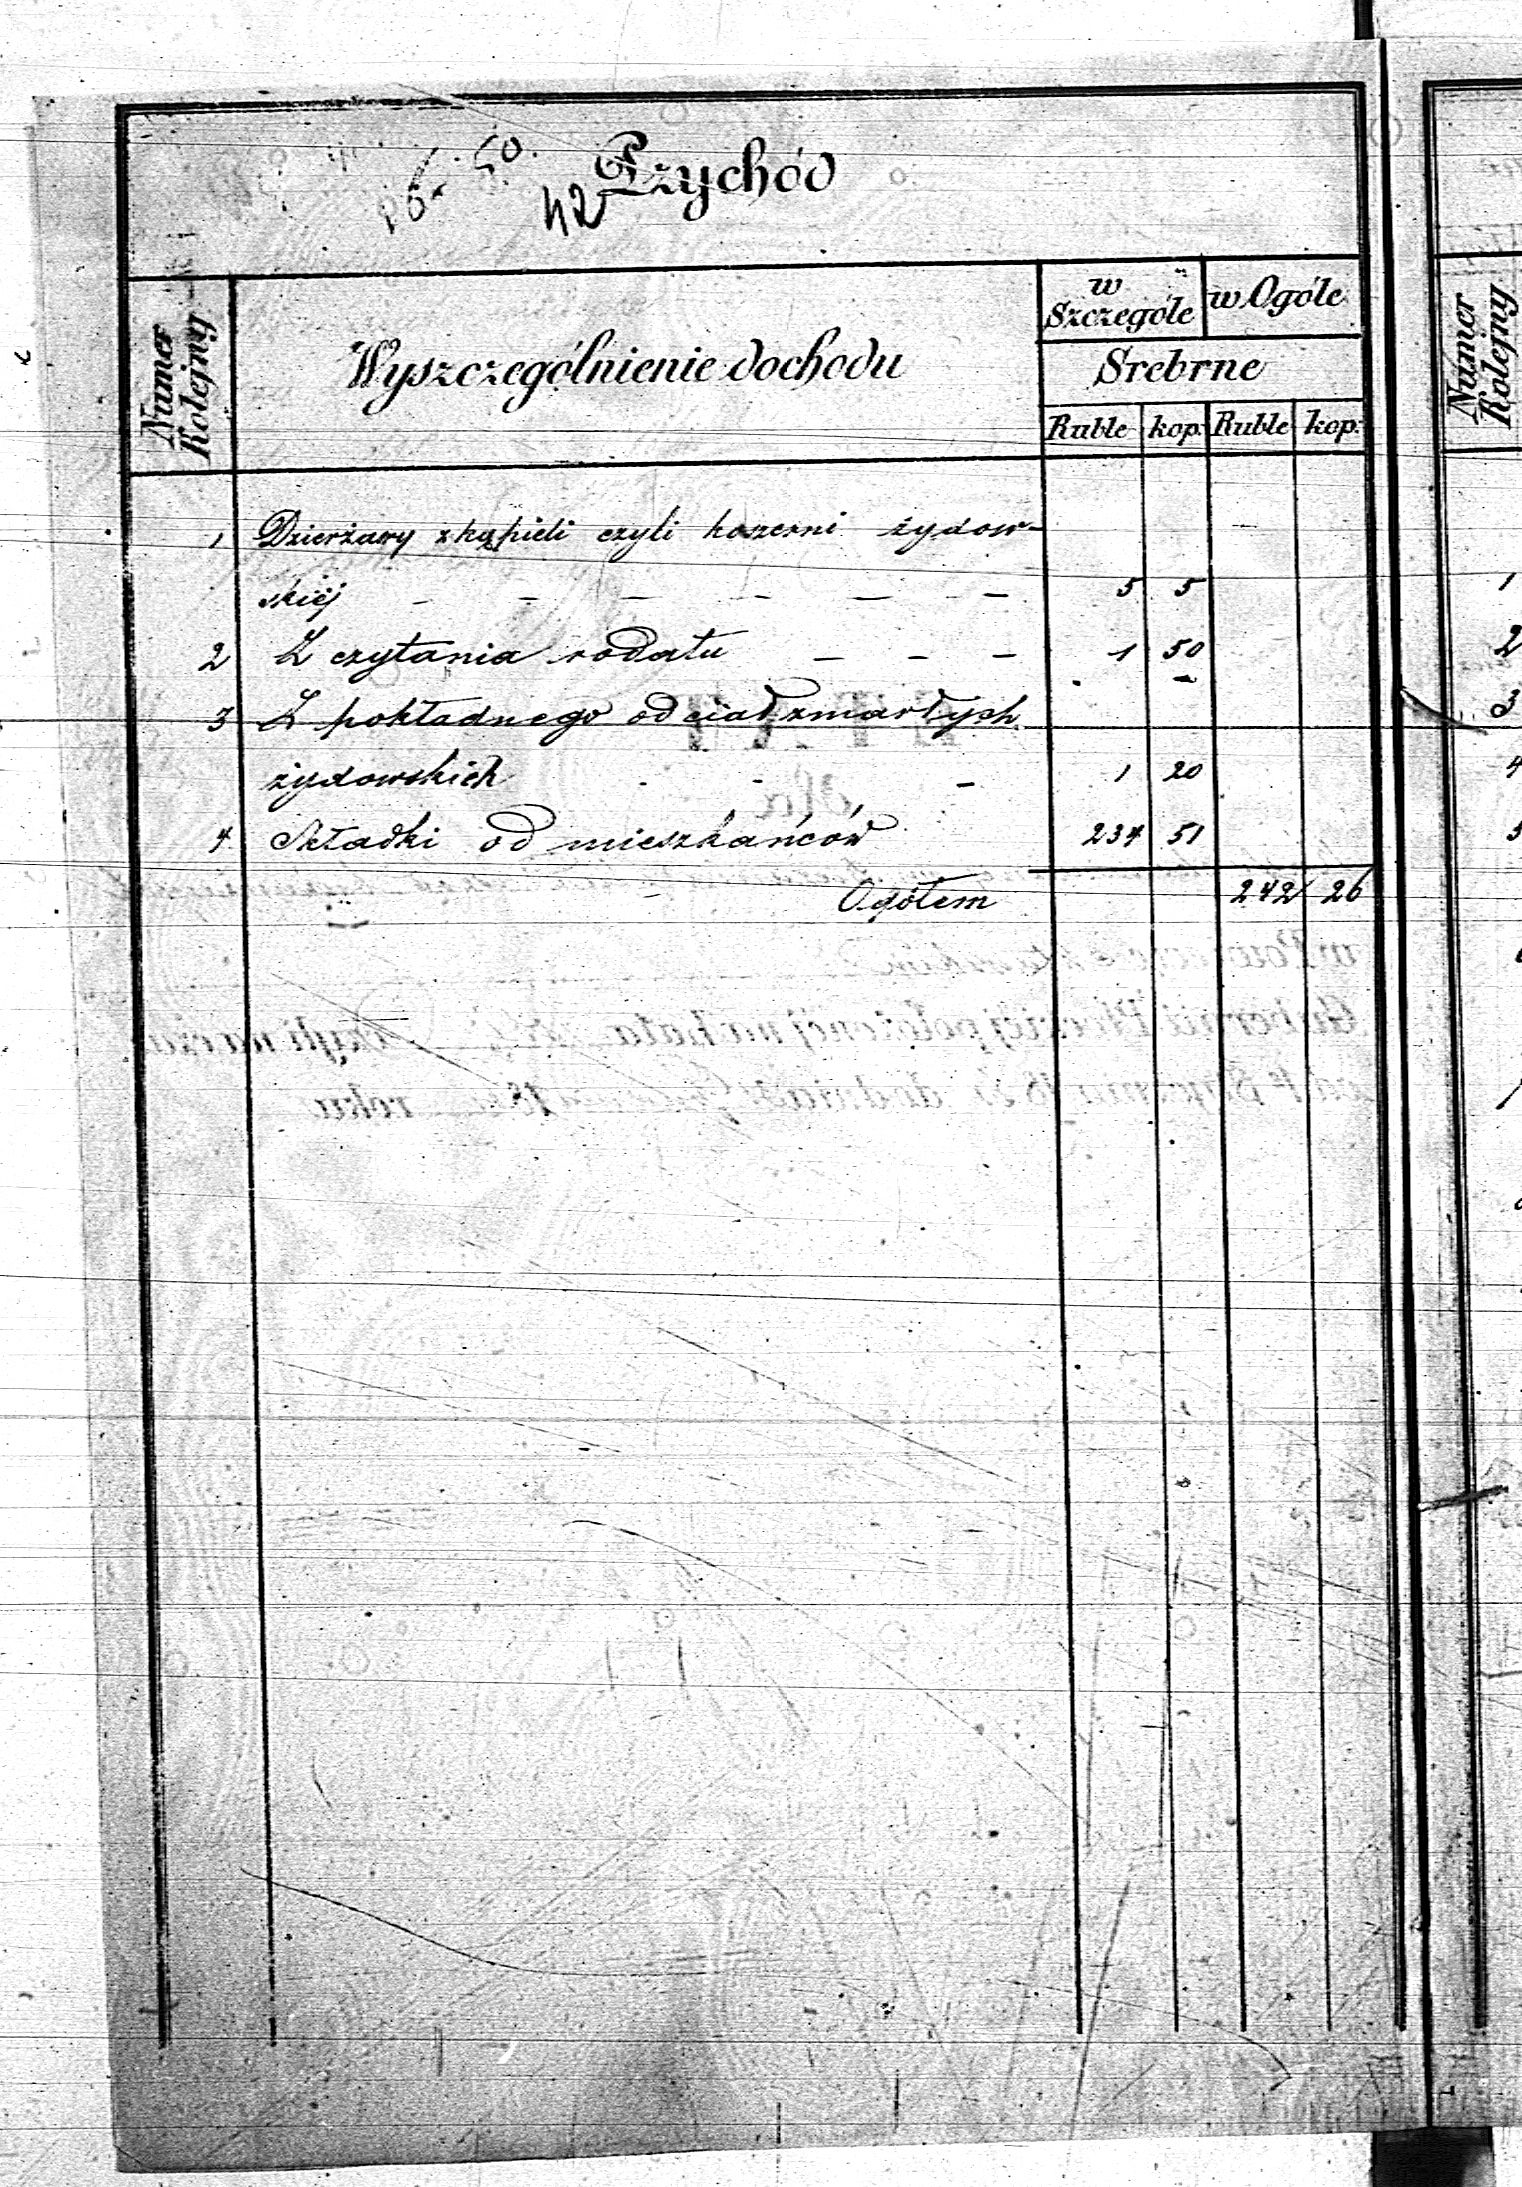 50.
42
Przychód
Numer Kolejny
Wyszczególnienie dochodu
w Szczególe
w Ogóle
Srebrne
Ruble kop: Ruble kop:
1 Dzierżawy z kąpieli czyli koszerni żydow-
skiej — — — — — — 5 5
2 Z czytania rodału — — — 1 50
3 Z pokładnego od ciał zmarłych
żydowskich - - — 1 20
4 Składki od mieszkańców 234 51
Ogółem 242 26
Numer Kolejny
1
2
3
4
5